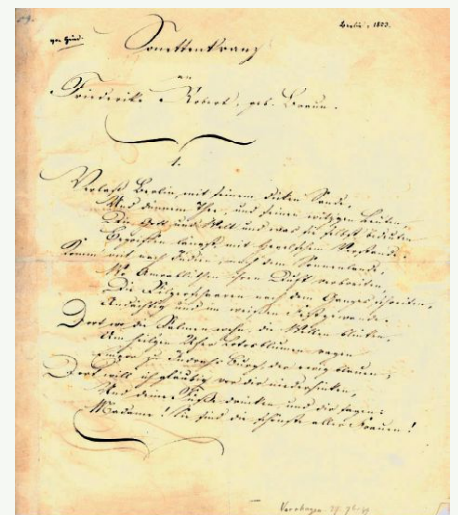 Berlin, 1823.
Sonettenkranz
an
Friederike Robert, geb. Braun.
1.
Verlaß Berlin, mit seinem dicken Sande,
Und dünnem Thee, und seinen witzigen Leuten,
Die Gott und Welt und was sie selbst bedeuten
Begriffen längst mit Hegelschem Verstande.
Komm mit nach Indien, nach dem Sonnenlande,
Wo ihren Duft verbreiten,
Die Pilgerschaaren nach dem Ganges schreiten,
Andächtig und im weißen Festgewande.
Dort wo die Palmen wehn, die Wellen blinken,
Am heilgen Ufer Lotosblumen ragen
Empor zu Indra's Burg, der ewig blauen;
Dort will ich gläubig vor dir niedersinken,
Und deine Füße drücken und dir sagen:
Madame! Sie sind die schönste aller Frauen!
Varnhagen